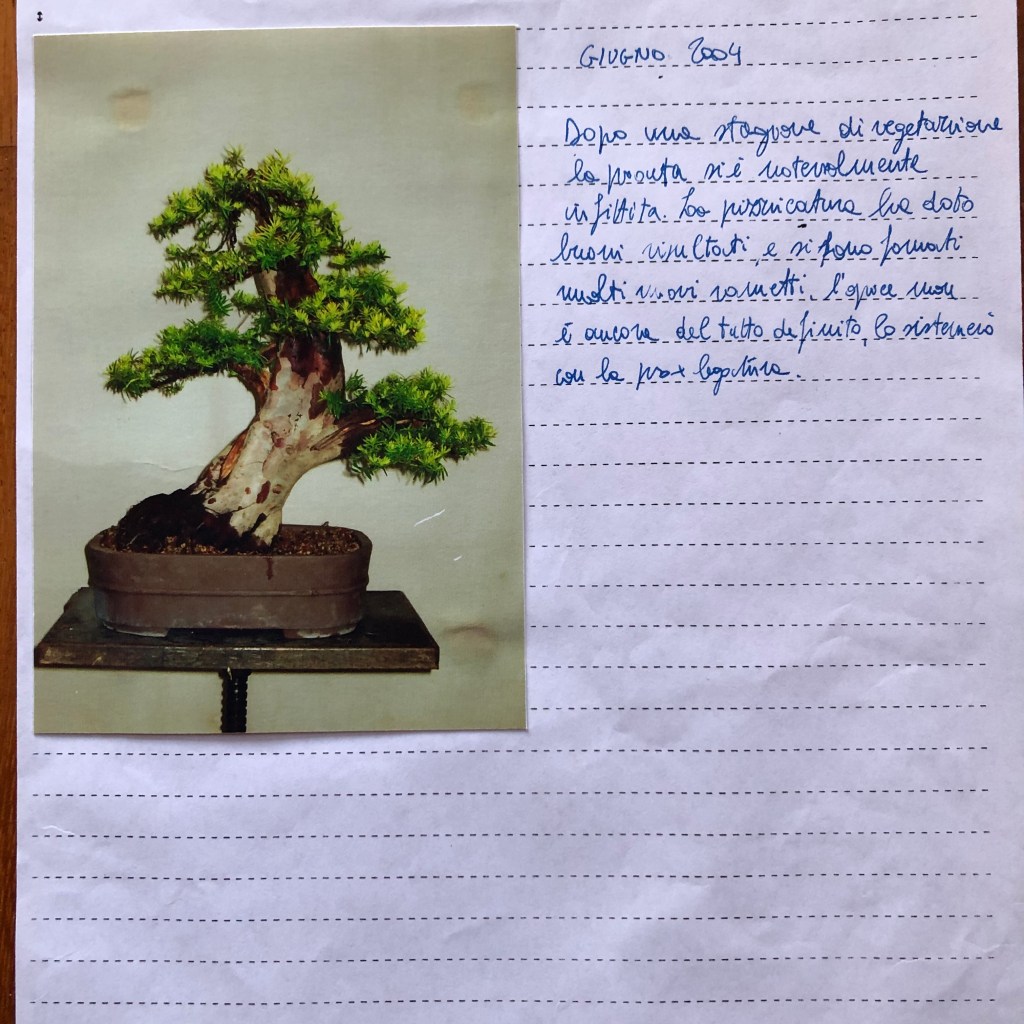 GIUGNO 2004
Dopo una stagione di vegetazione
la pianta si è notevolmente
infittita. La pizzicatura ha dato
buoni risultati, e si sono formati
molti nuovi rametti. l'apice non
è ancora del tutto definito, lo sistemerò
con la pross legatura.